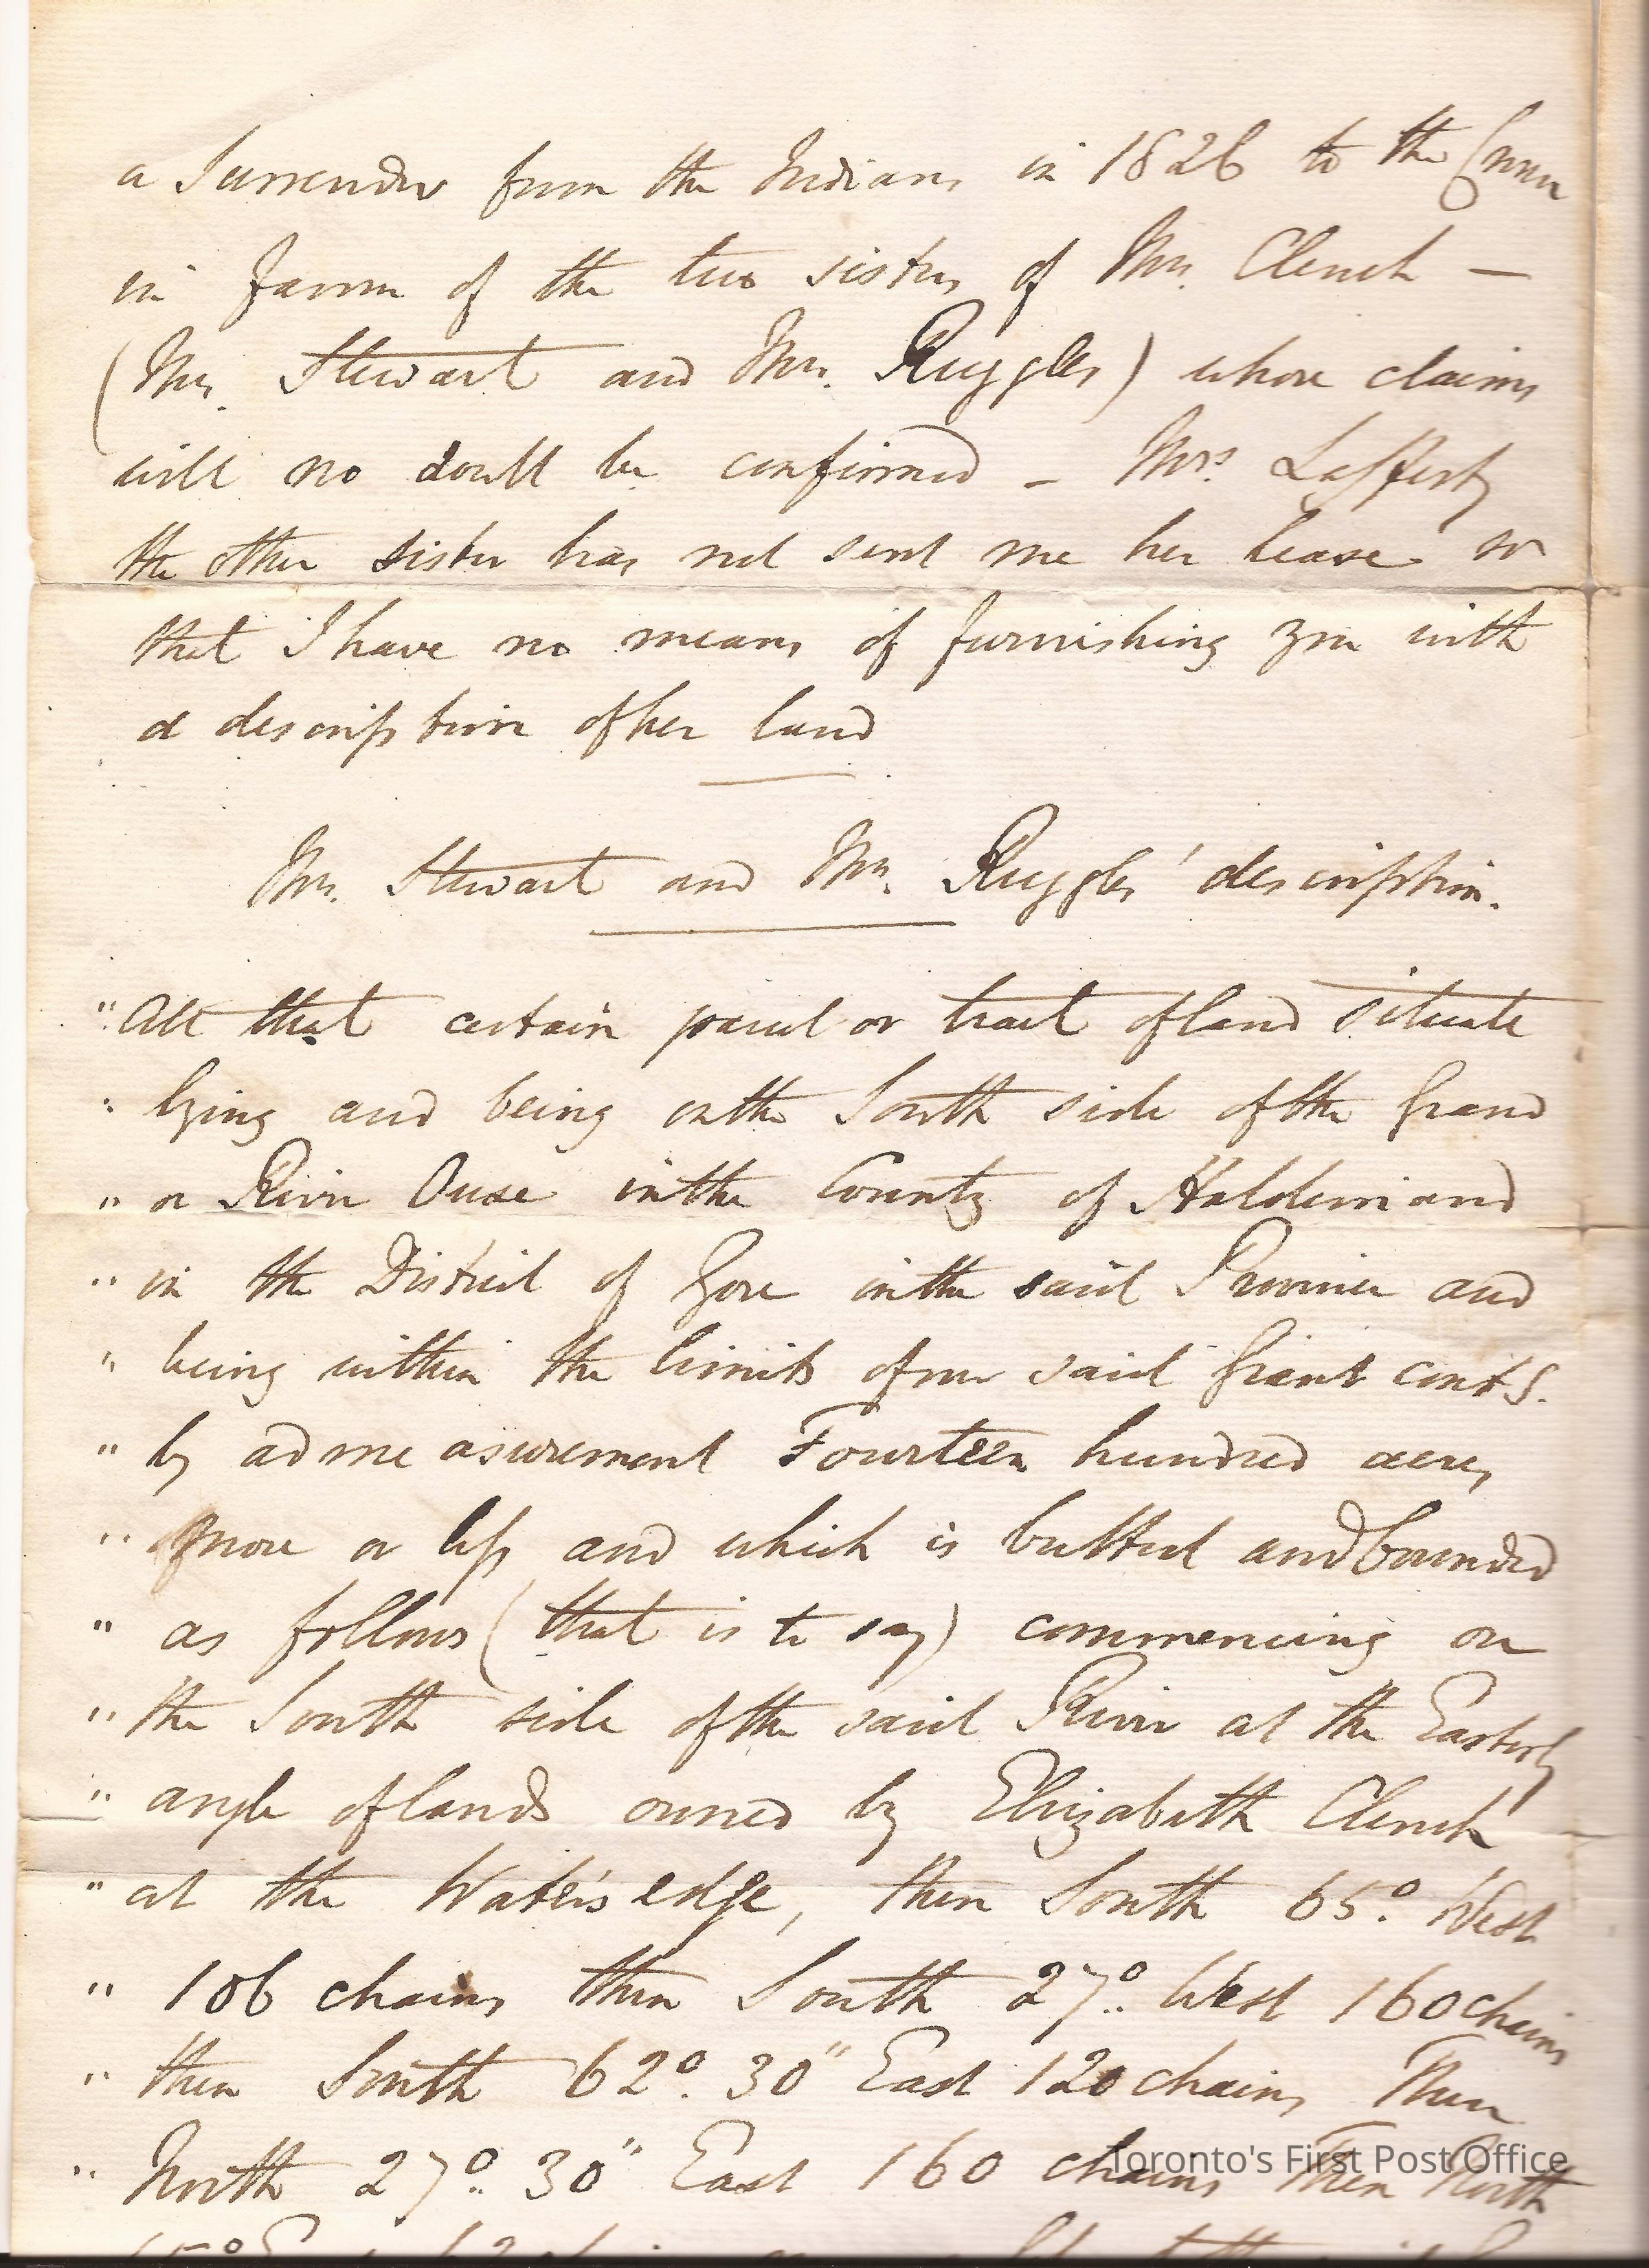 a Surrender from the Indians in 1826 to the Crown
in favour of the two sisters of Mrs. Clench —
(Mrs. Stewart and Mrs. Ruggles) whose claims
will no doubt be confirmed – Mrs. Lafferty
the other sister has not sent me her lease so
that I have no means of furnishing you with
a description of her land
Mrs. Stewart and Mrs. Ruggles' description.
" All that certain parcel or tract of land situate
" lying and being on the South side of the Grand
" or River Ouse in the County of Haldimand
" in the District of Gore in the said Province and
" being within the limits of our said Grant contg.
" by admeasurement Fourteen hundred acres
" more or less and which is butted and bounded
" as follows (that is to say) commencing on
" the South side of the said River at the Easterly
" angle of lands owned by Elizabeth Clench
" at the Water's edge, then South 65°. West
" 106 chains then South 27°. West 160 chains
" then South 62°. 30" East 120 chains Then
" North 27°. 30" East 160 chains Then North
Toronto's First Post Office